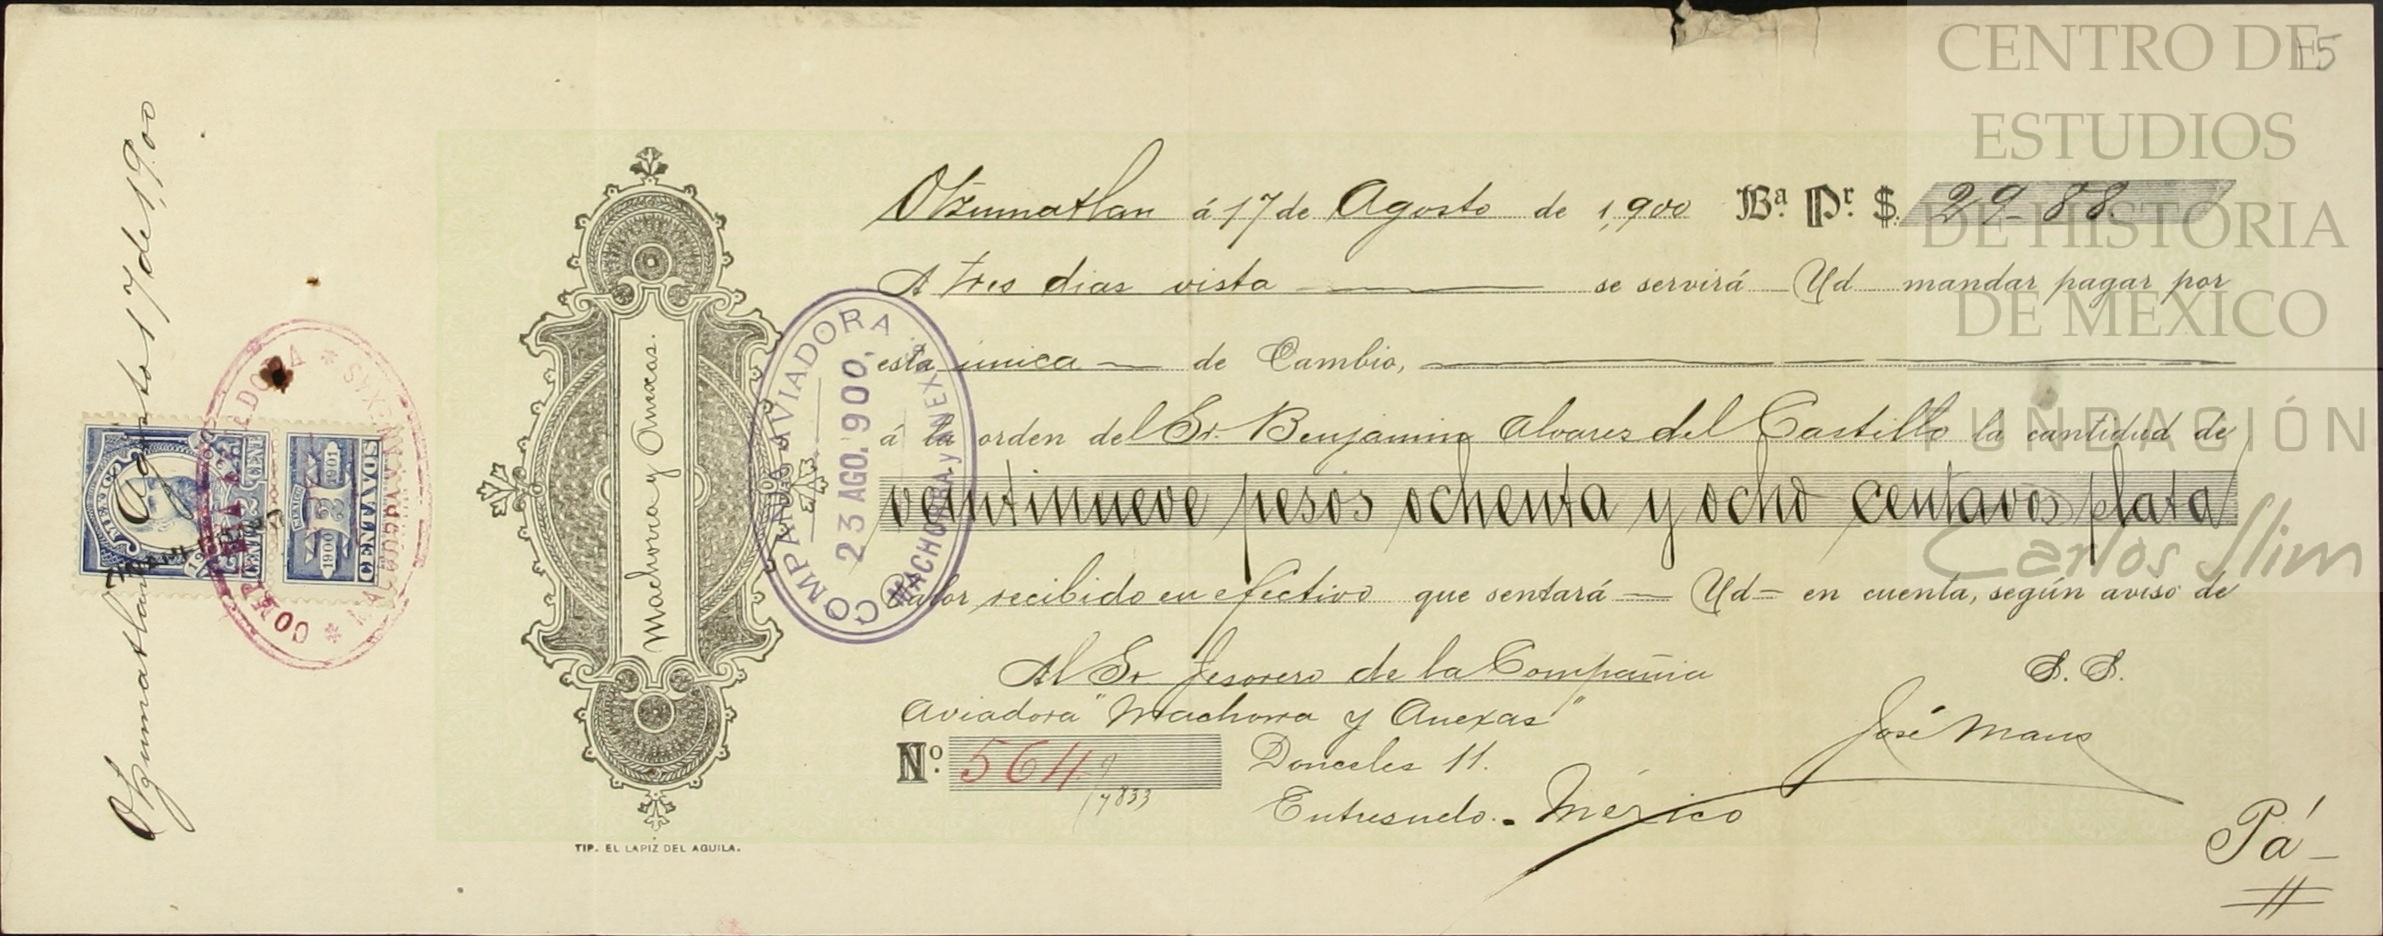 CENTRO DE
ESTUDIOS
DE HISTORIA
DE MEXICO
FUNDACIÓN
Carlos Slim
15
Otzumatlan á 17 de Agosto de 1,900 Bª. Pr. $. 29-88.
A tres dias vista se servirá Ud mandar pagar por
esta única de Cambio,
á la orden del Sr. Benjamin Alvares del Castillo la cantidad de
veintinueve pesos ochenta y ocho centavos plata
Valor recibido en efectivo que sentará Ud en cuenta, según aviso de
Al Sr Tesorero de la Compañia S. S.
Aviadora "Machorra y Anexas" José Maus
Nº. 564 Donceles 11.
17833
Entresuelo. - México
Pá
Machorra y Anexas.
TIP. EL LAPIZ DEL AGUILA.
COMPAÑIA AVIADORA
23 AGO. 900.
MACHORRA y ANEXAS
Otzumatlan Agosto 17 de 1,900
MEXICO
CENT
1900 MEXICO 1901
3
CENTAVOS
COMPAÑIA AVIADORA
MACHORRA Y ANEXAS